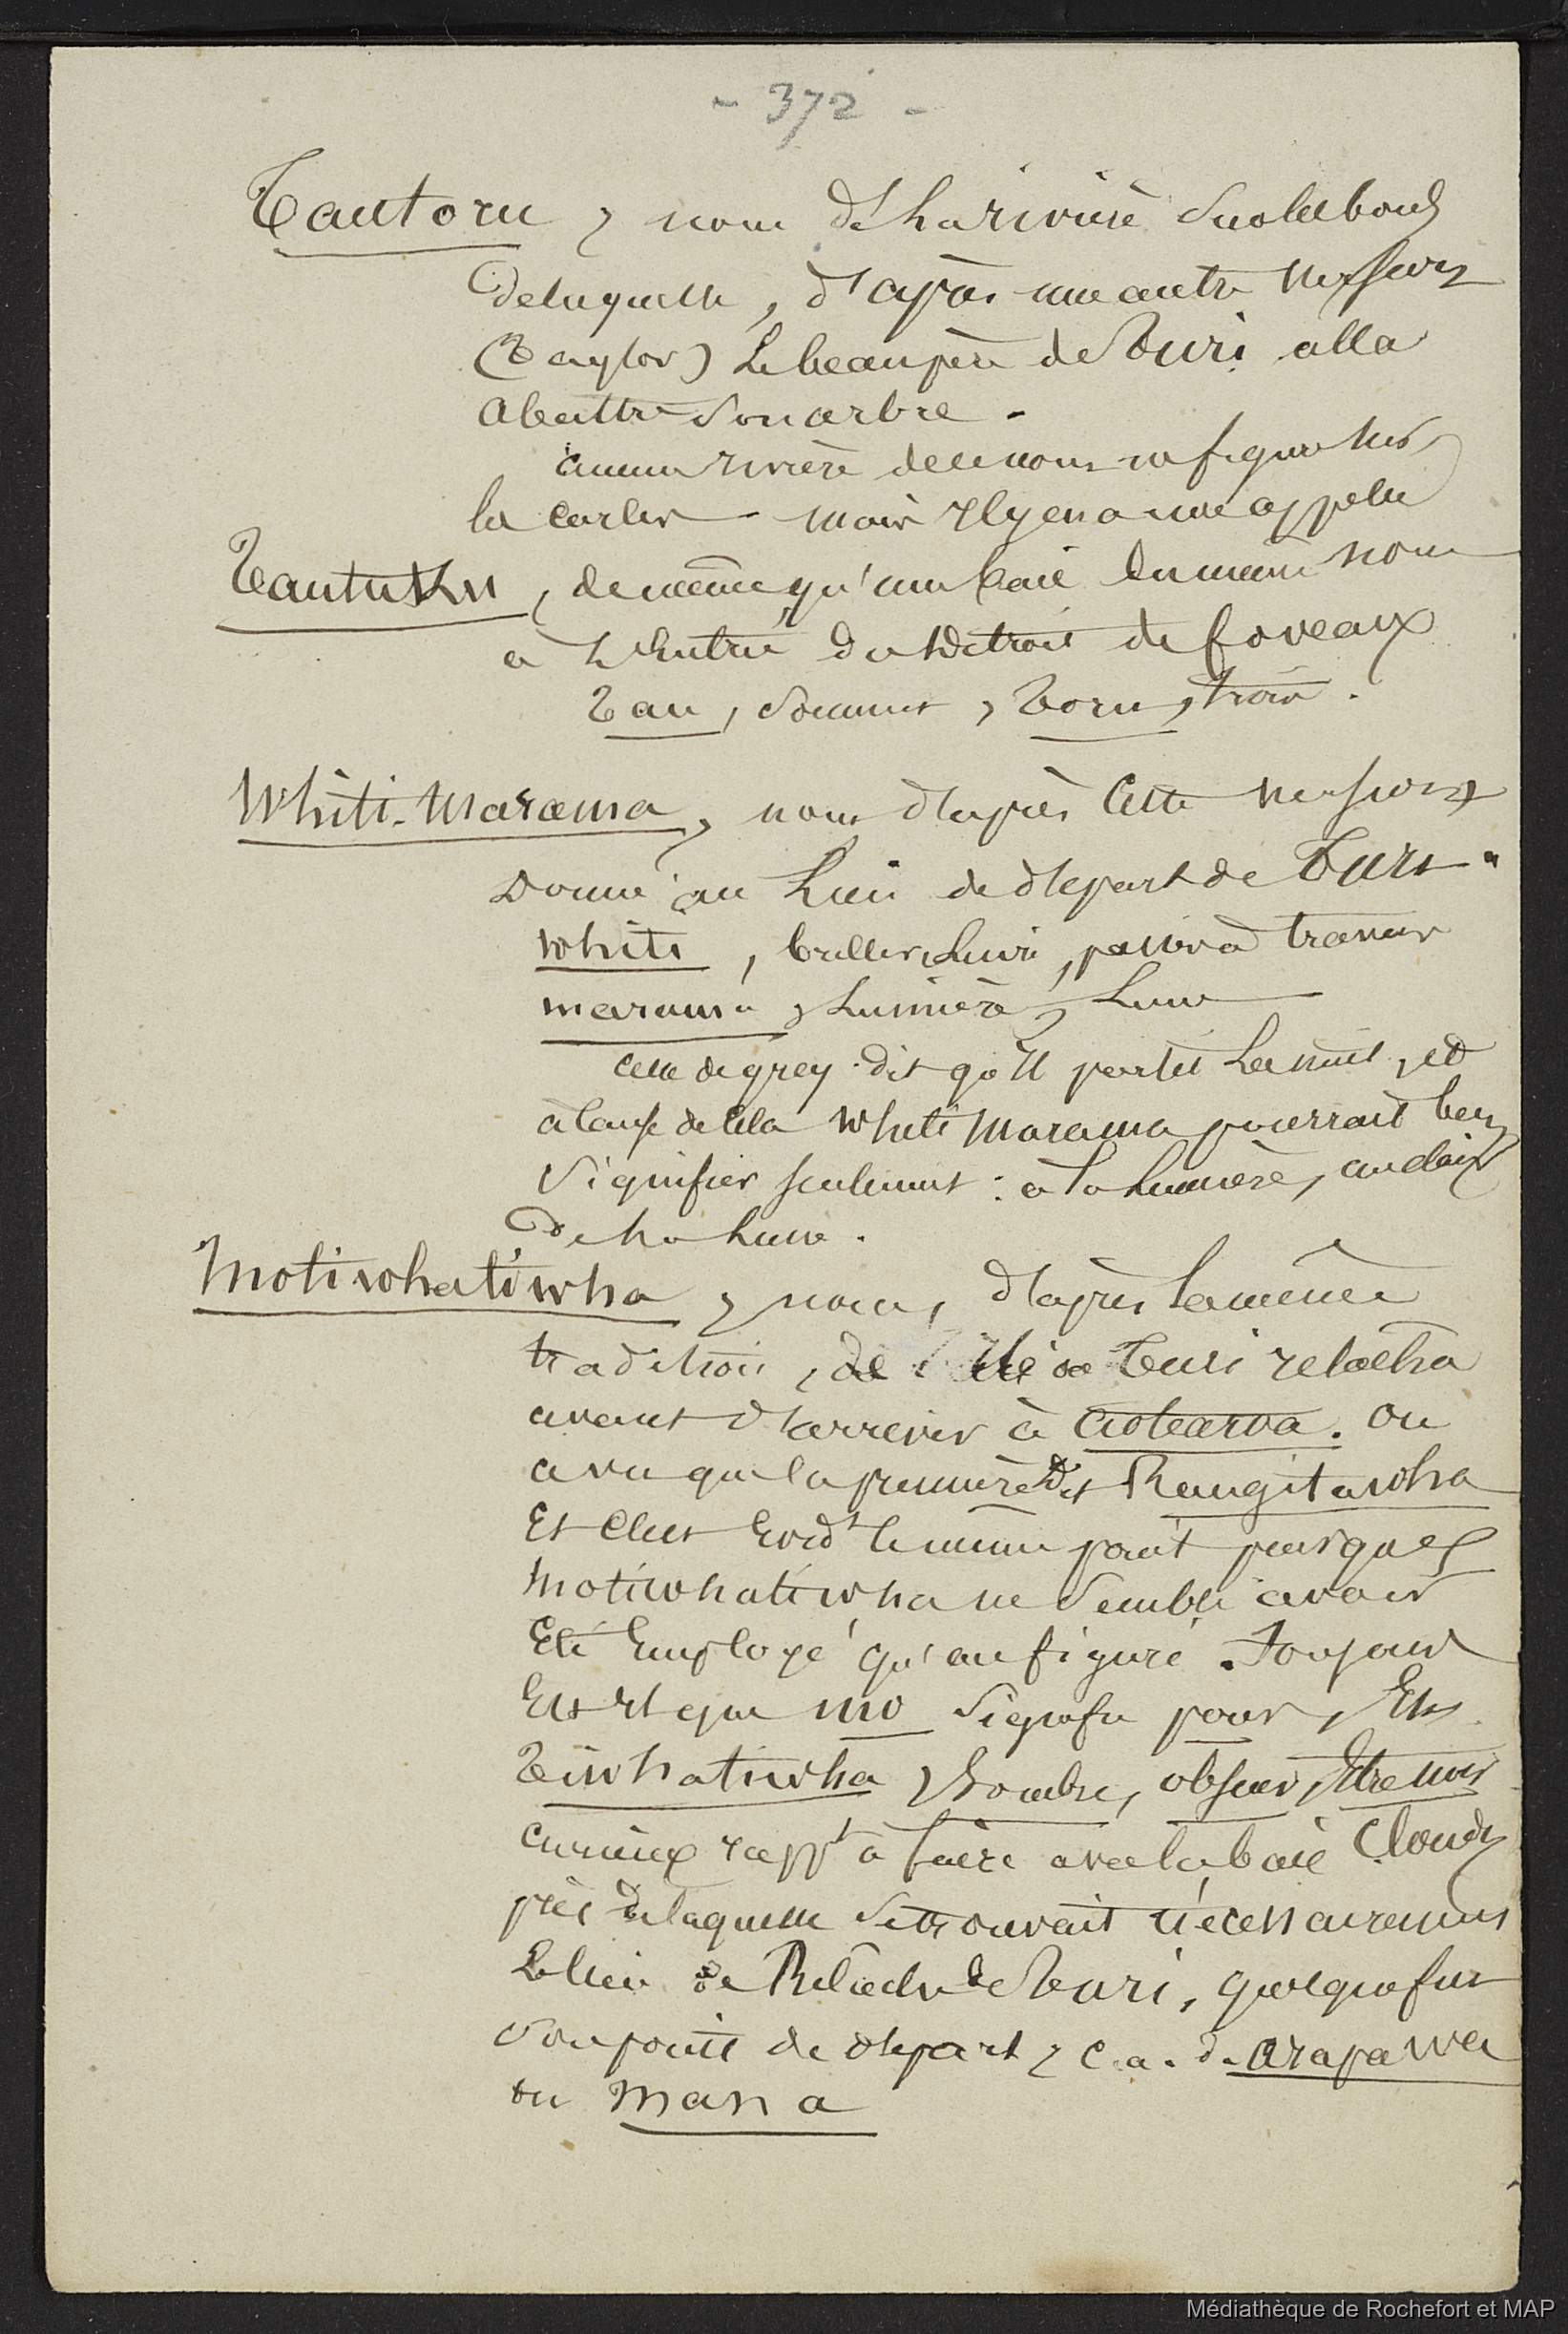 - 372 -
Tautoru, nom de la rivière sur les bords
de laquelle, d'après une autre version
(Taylor) le beau père de Turi alla
abattre son arbre -
aucune rivière de ce nom ne figure sur
la cartes - mais il y en a une appelée
Tautuku, de même qu'une baie du même nom
à l'Entrée du détroit de foveaux
Tau, sommet, Toru, trois.
Whiti-Marama, nom d'après cette version
donné au lieu de départ de Turi.
whiti, briller, luire, passer à travers
marama, lumière, lune
celle de grey dit qu'il partit la nuit, et
à cause de cela Whiti Marama pourrait bien
signifier seulement : à la lumière, au clair
de la lune.
Motiwhatiwha, nom, d'après la même
tradition, de l'île où Turi relâcha
avant d'arriver à aotearoa. On
a vu que la première dit Rangitawha
Et c'est Evidt le même point puisque
Motiwhatiwha ne semble avoir
Eté Employé qu'au figuré. Toujours
Est il que mo signifie pour, Et
Teiwhatiwha, sombre, obscur, Etre noir
curieux rappt à faire avec la baie Cloudy
près de laquelle se trouvait nécessairement
Le lieu de Relâche de Turi, quelque fut
son point de départ, c. a. d. arapawa
ou mana
Médiathèque de Rochefort et MAP